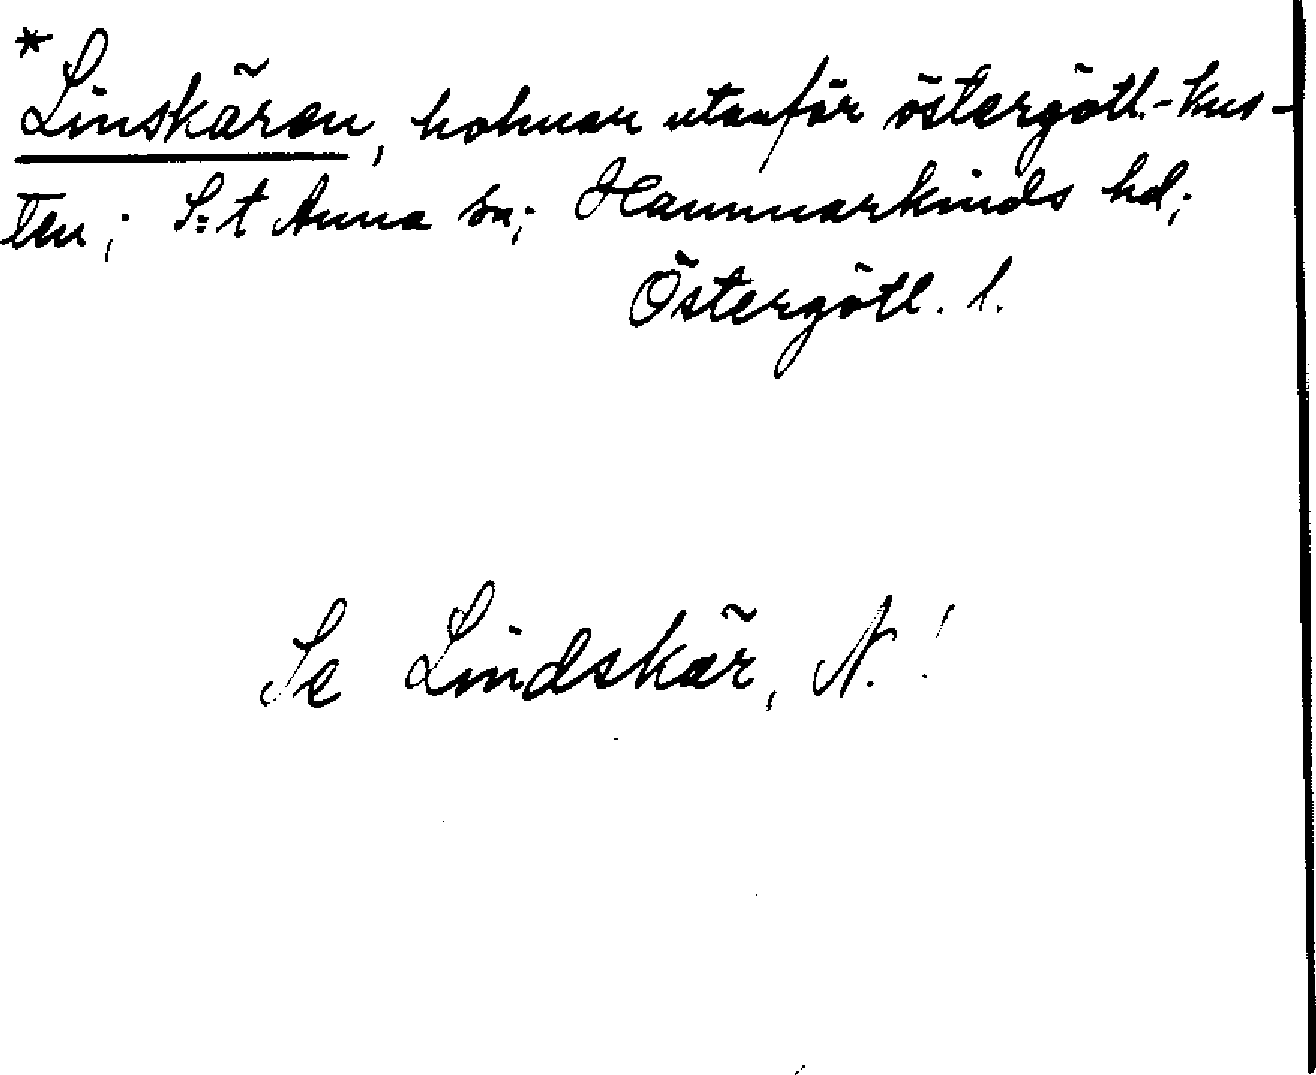 *
Linskären, holmar utanför östergötl.-kus-
ten; S:t Anna sn; Hammarkinds hd;
Östergötl. l.
Se Lindskär, N.!